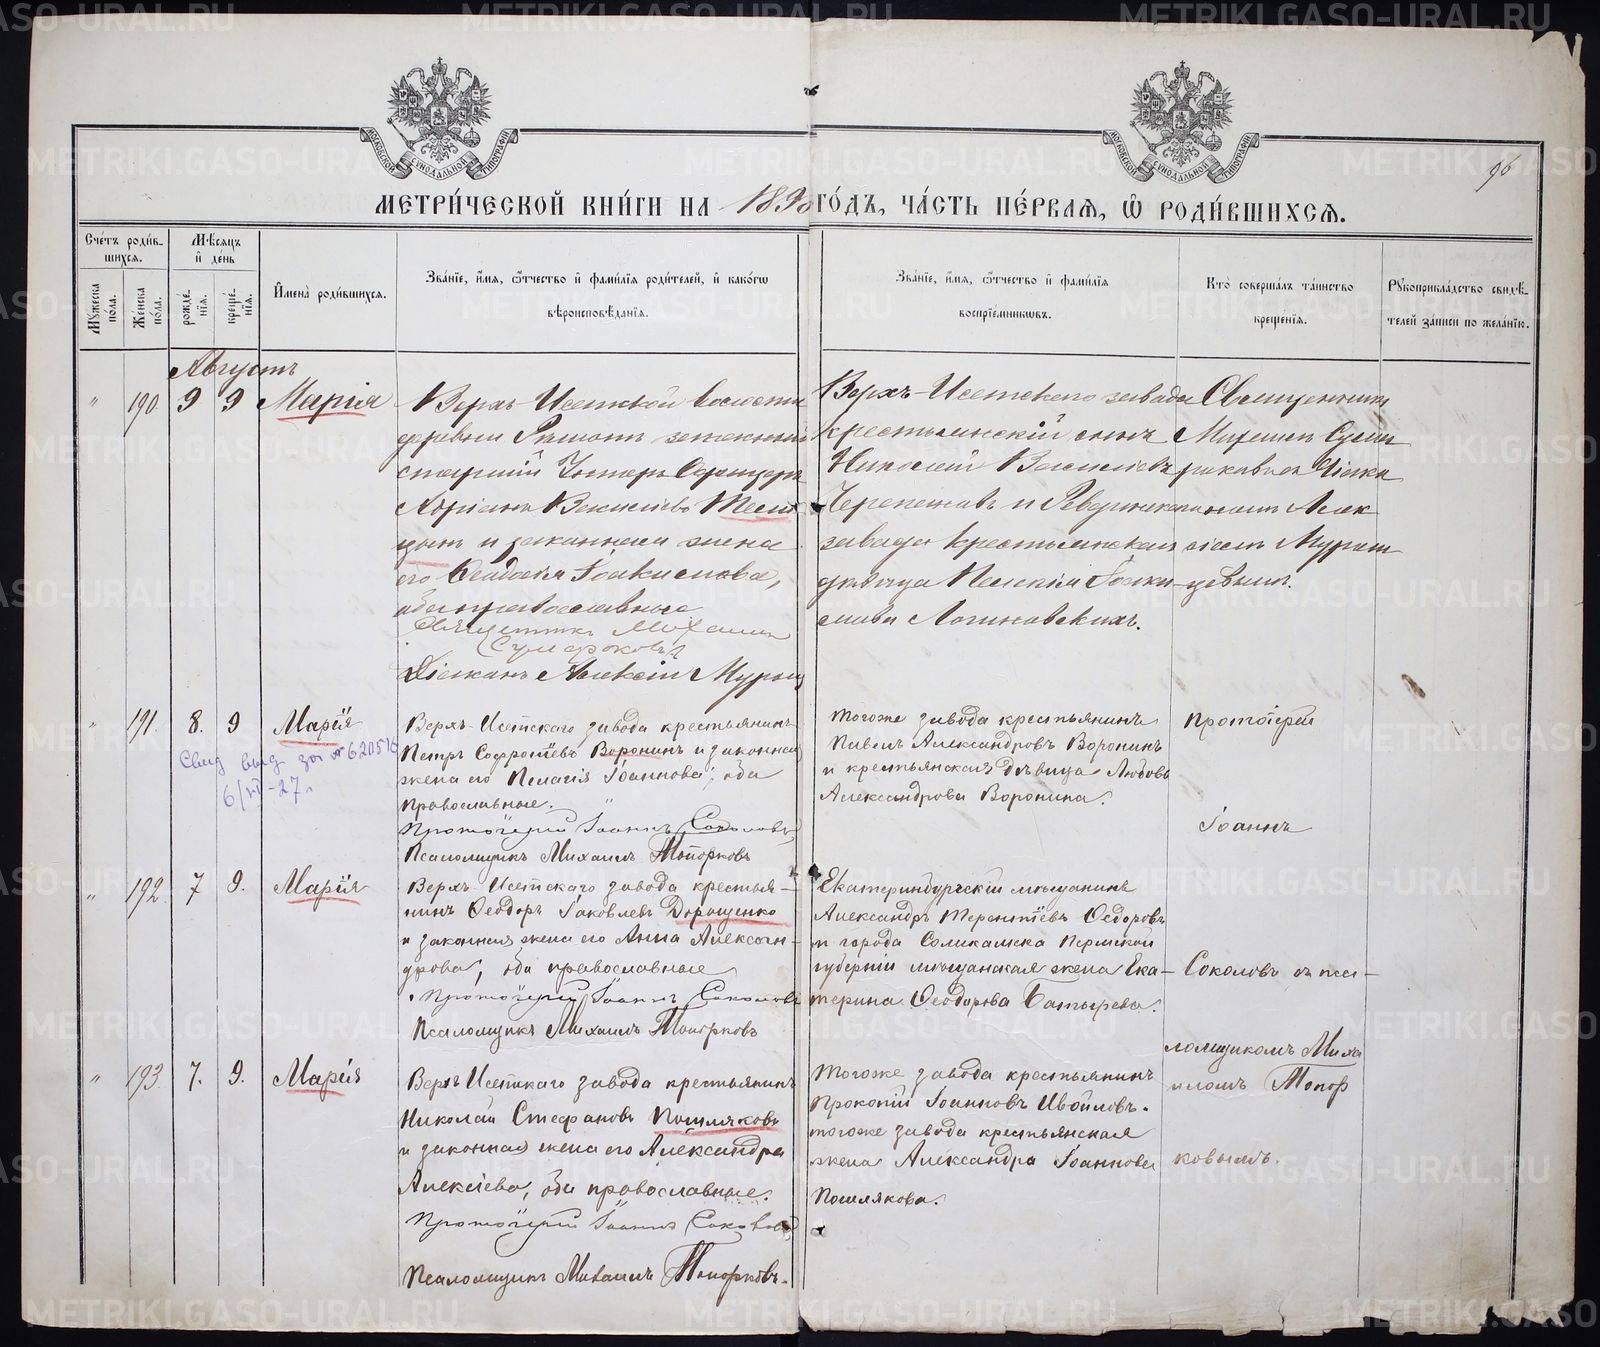 96
МОСКОВСКОЙ СИНОДАЛЬНОЙ ТИПОГРАФІИ
МОСКОВСКОЙ СИНОДАЛЬНОЙ ТИПОГРАФІИ
МЕТРИ́ЧЕСКОЙ КНИ́ГИ НА 1890 ГО́ДЪ, ЧА́СТЬ ПЕ́РВАЯ, Ѡ РОДИ́ВШИХСЯ.
Сче́тъ роди́вшихся.
Мѣ́сяцъ и҆ де́нь
Му́жеска по́ла.
Же́нска по́ла.
рожде́нїѧ.
креще́нїѧ.
И҆мена̀ роди́вшихся.
Зва́нїе, и҆́мѧ, ѻ҆́тчество и҆ фами́лїѧ роди́телей, и҆ како́гѡ
вѣроисповѣ́данїѧ.
Зва́нїе, и҆́мѧ, ѻ҆́тчество и҆ фами́лїѧ
воспрїе́мникѡвъ.
Кто̀ соверша́лъ та́инство
креще́нїѧ.
Рꙋкоприкла́дство свидѣ́-
телей за́писи по жела́нїю.
Августъ
" 190 9 9 Марія
Верхъ-Исетской волости
деревни
старшій Унтеръ Офицеръ
Адріанъ Васильевъ
и законная жена
его Ѳеодосія
оба православные
Священникъ Михаилъ
Діаконъ Алексій
Верхъ-Исетскаго завода
крестьянскій сынъ
Николай Васильевъ
Черепановъ и Ревдинскаго
завода крестьянская
дѣвица Пелагія
Логиновскихъ.
Священникъ
Михаилъ
діакономъ Алек
сіемъ
" 191. 8. 9 Марія
Свид выд за № 620516
6/VI-27.
Верхъ-Исетскаго завода крестьянинъ
Петръ Софроніевъ Воронинъ и законная
жена его Пелагія Іоаннова, оба
православные.
Протоіерей Іоаннъ Соколовъ
Псаломщикъ Михаилъ Топорковъ
тогоже завода крестьянинъ
Павелъ Александровъ Воронинъ
и крестьянская дѣвица Любовь
Александрова Воронина.
Протоіерей
Іоаннъ
" 192. 7 9. Марія
Верхъ-Исетскаго завода крестья-
нинъ Ѳеодоръ Іаковлевъ Дорощенко
и законная жена его Анна Алексан-
дрова, оба православные
Протоіерей Іоаннъ Соколовъ
Псаломщикъ Михаилъ Топорковъ
Екатеринбургскій мѣщанинъ
Александръ Терентіевъ Ѳедоровъ
и города Соликамска Пермской
губерніи мѣщанская жена Ека-
терина Ѳеодорова Батырева.
Соколовъ съ пса-
ломщикомъ Миха
иломъ Топор
ковымъ.
" 193. 7. 9. Марія
Верхъ Исетскаго завода крестьянинъ
Николай Стефановъ Пошляковъ
и законная жена его Александра
Алексіева, оба православные.
Протоіерей Іоаннъ Соколовъ
Псаломщикъ Михаилъ Топорковъ.
тогоже завода крестьянинъ
Прокопій Іоанновъ Ивойловъ.
тогоже завода крестьянская
жена Александра Іоаннова
Пошлякова.
METRIKI.GASO-URAL.RU